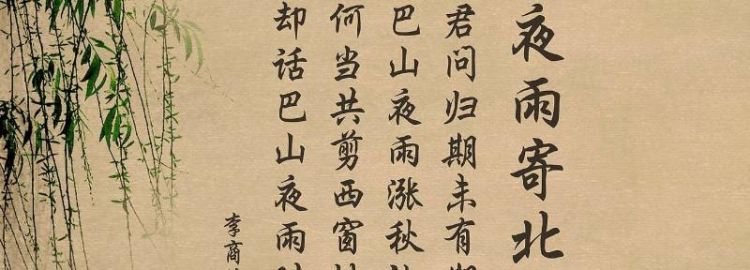 夜雨寄北
君问归期未有
巴山夜雨涨秋
何当共剪西窗
却话巴山夜雨
李商